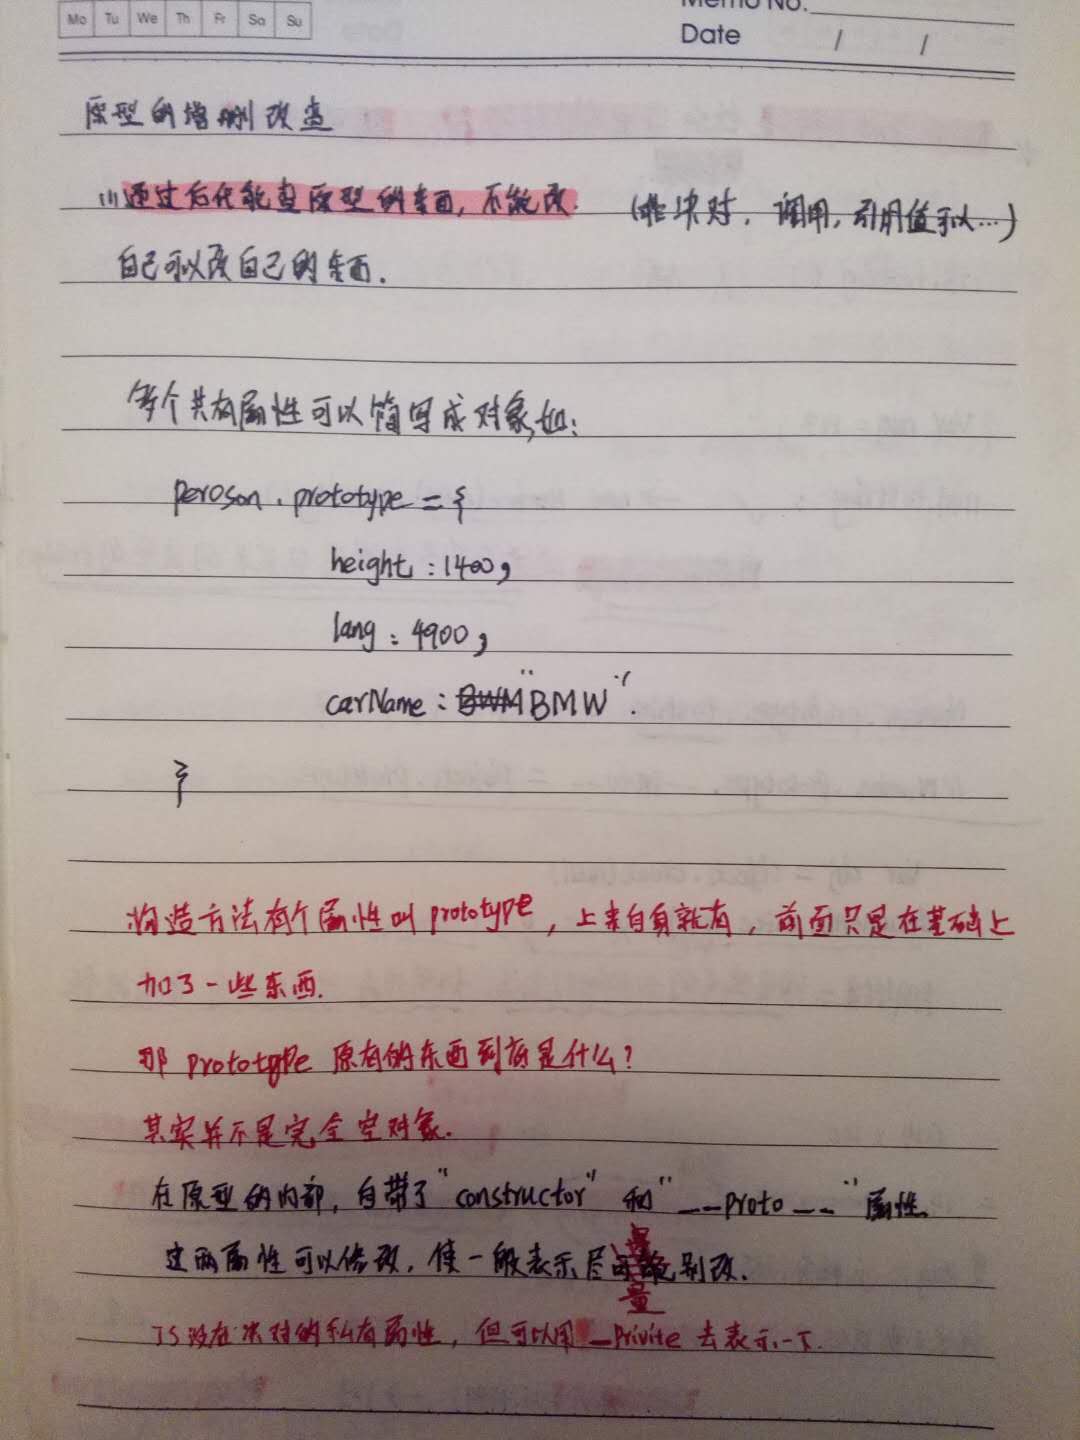 Mo Tu We Th Fr Sa Su
Memo No.
Date / /
原型的增删改查
(1) 通过后代能查原型的东西, 不能改. (非绝对, 调用, 引用值可以…)
自己可以改自己的东西.
多个共有属性可以简写成对象, 如:
peroson.prototype = {
height : 1400,
lang : 4900,
carName : BWM "BMW".
}
构造方法有个属性叫 prototype, 上来自身就有, 前面只是在基础上
加了一些东西.
那 prototype 原有的东西到底是什么?
其实并不是完全空对象.
在原型的内部, 自带了 "constructor" 和 "__proto__" 属性.
这两属性可以修改, 但一般表示尽量别改.
JS没有绝对的私有属性, 但可以用 _Privite 去表示一下.